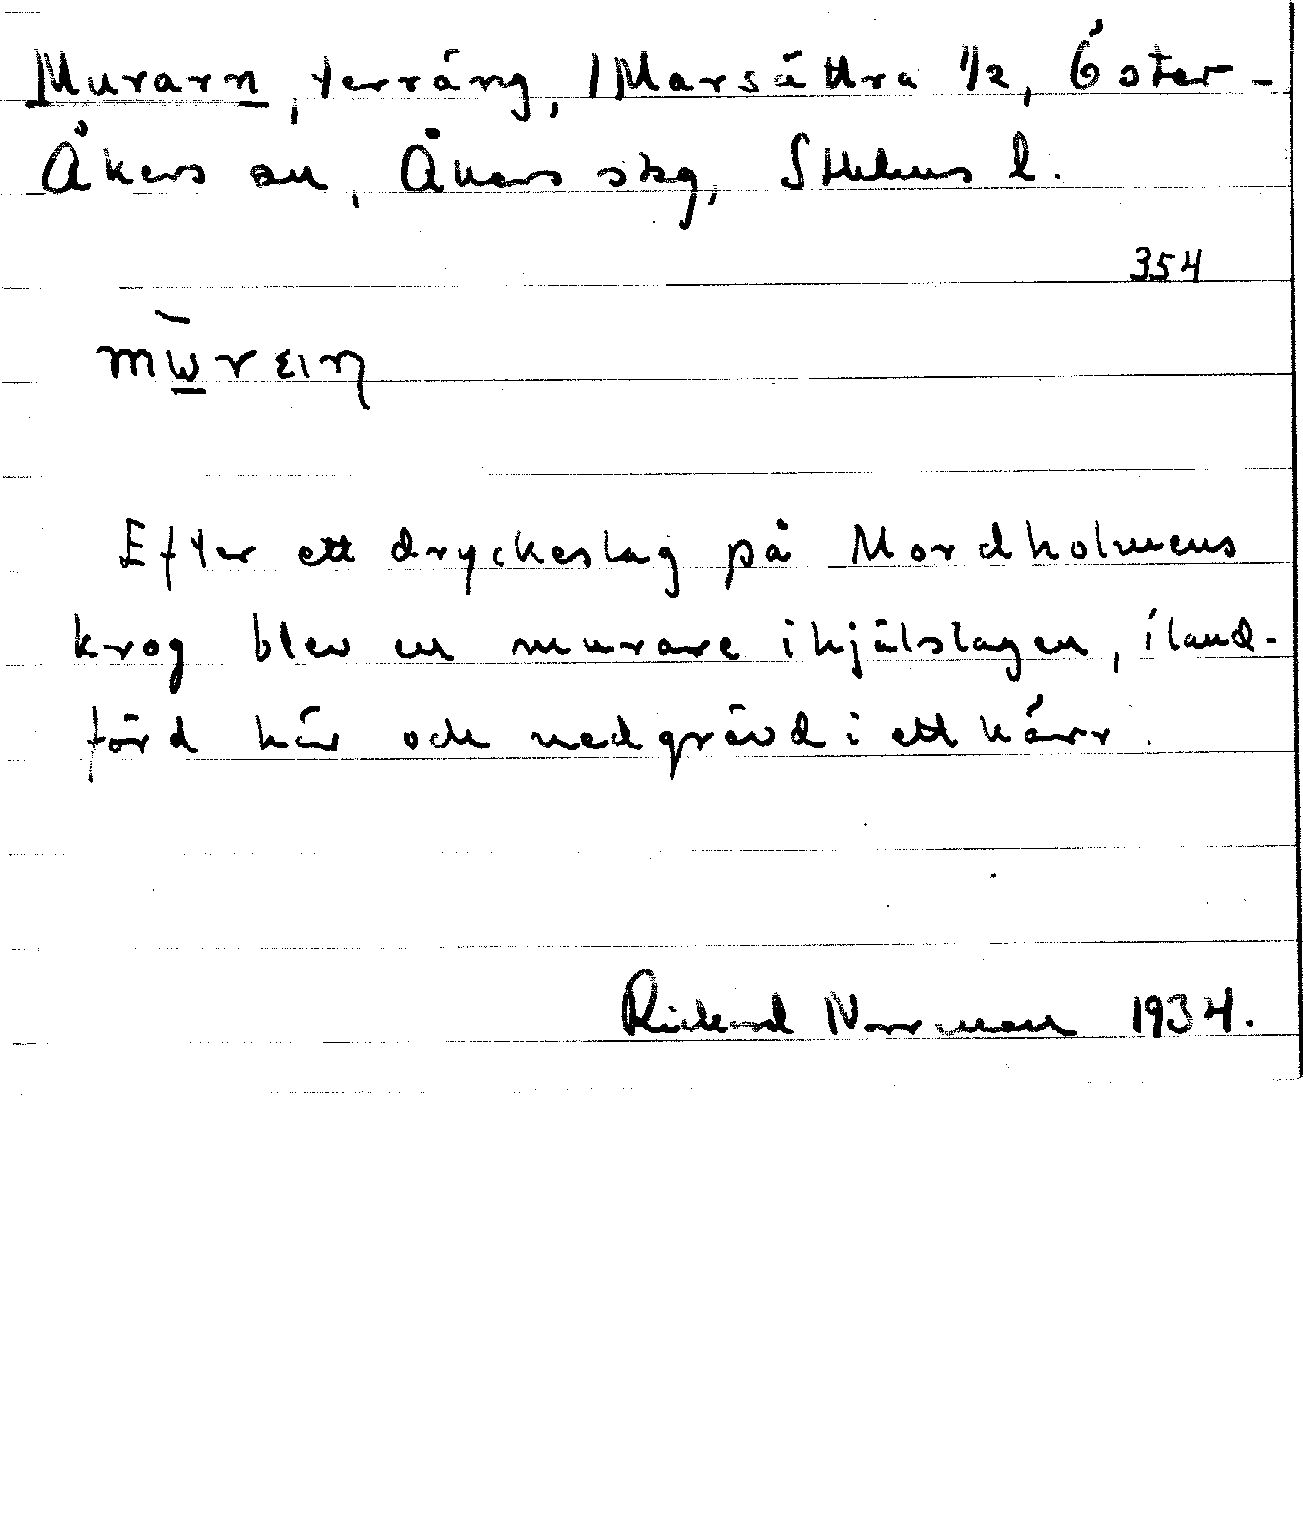 Murarn, terräng, Marsättra 1/2, Öster-
Åkers sn, Åkers skg, Sthlms l.
354
Efter ett dryckeslag på Mordholmens
krog blev en murare ihjälslagen, iland-
förd här och nedgrävd i ett kärr.
Rickard Norrman 1934.